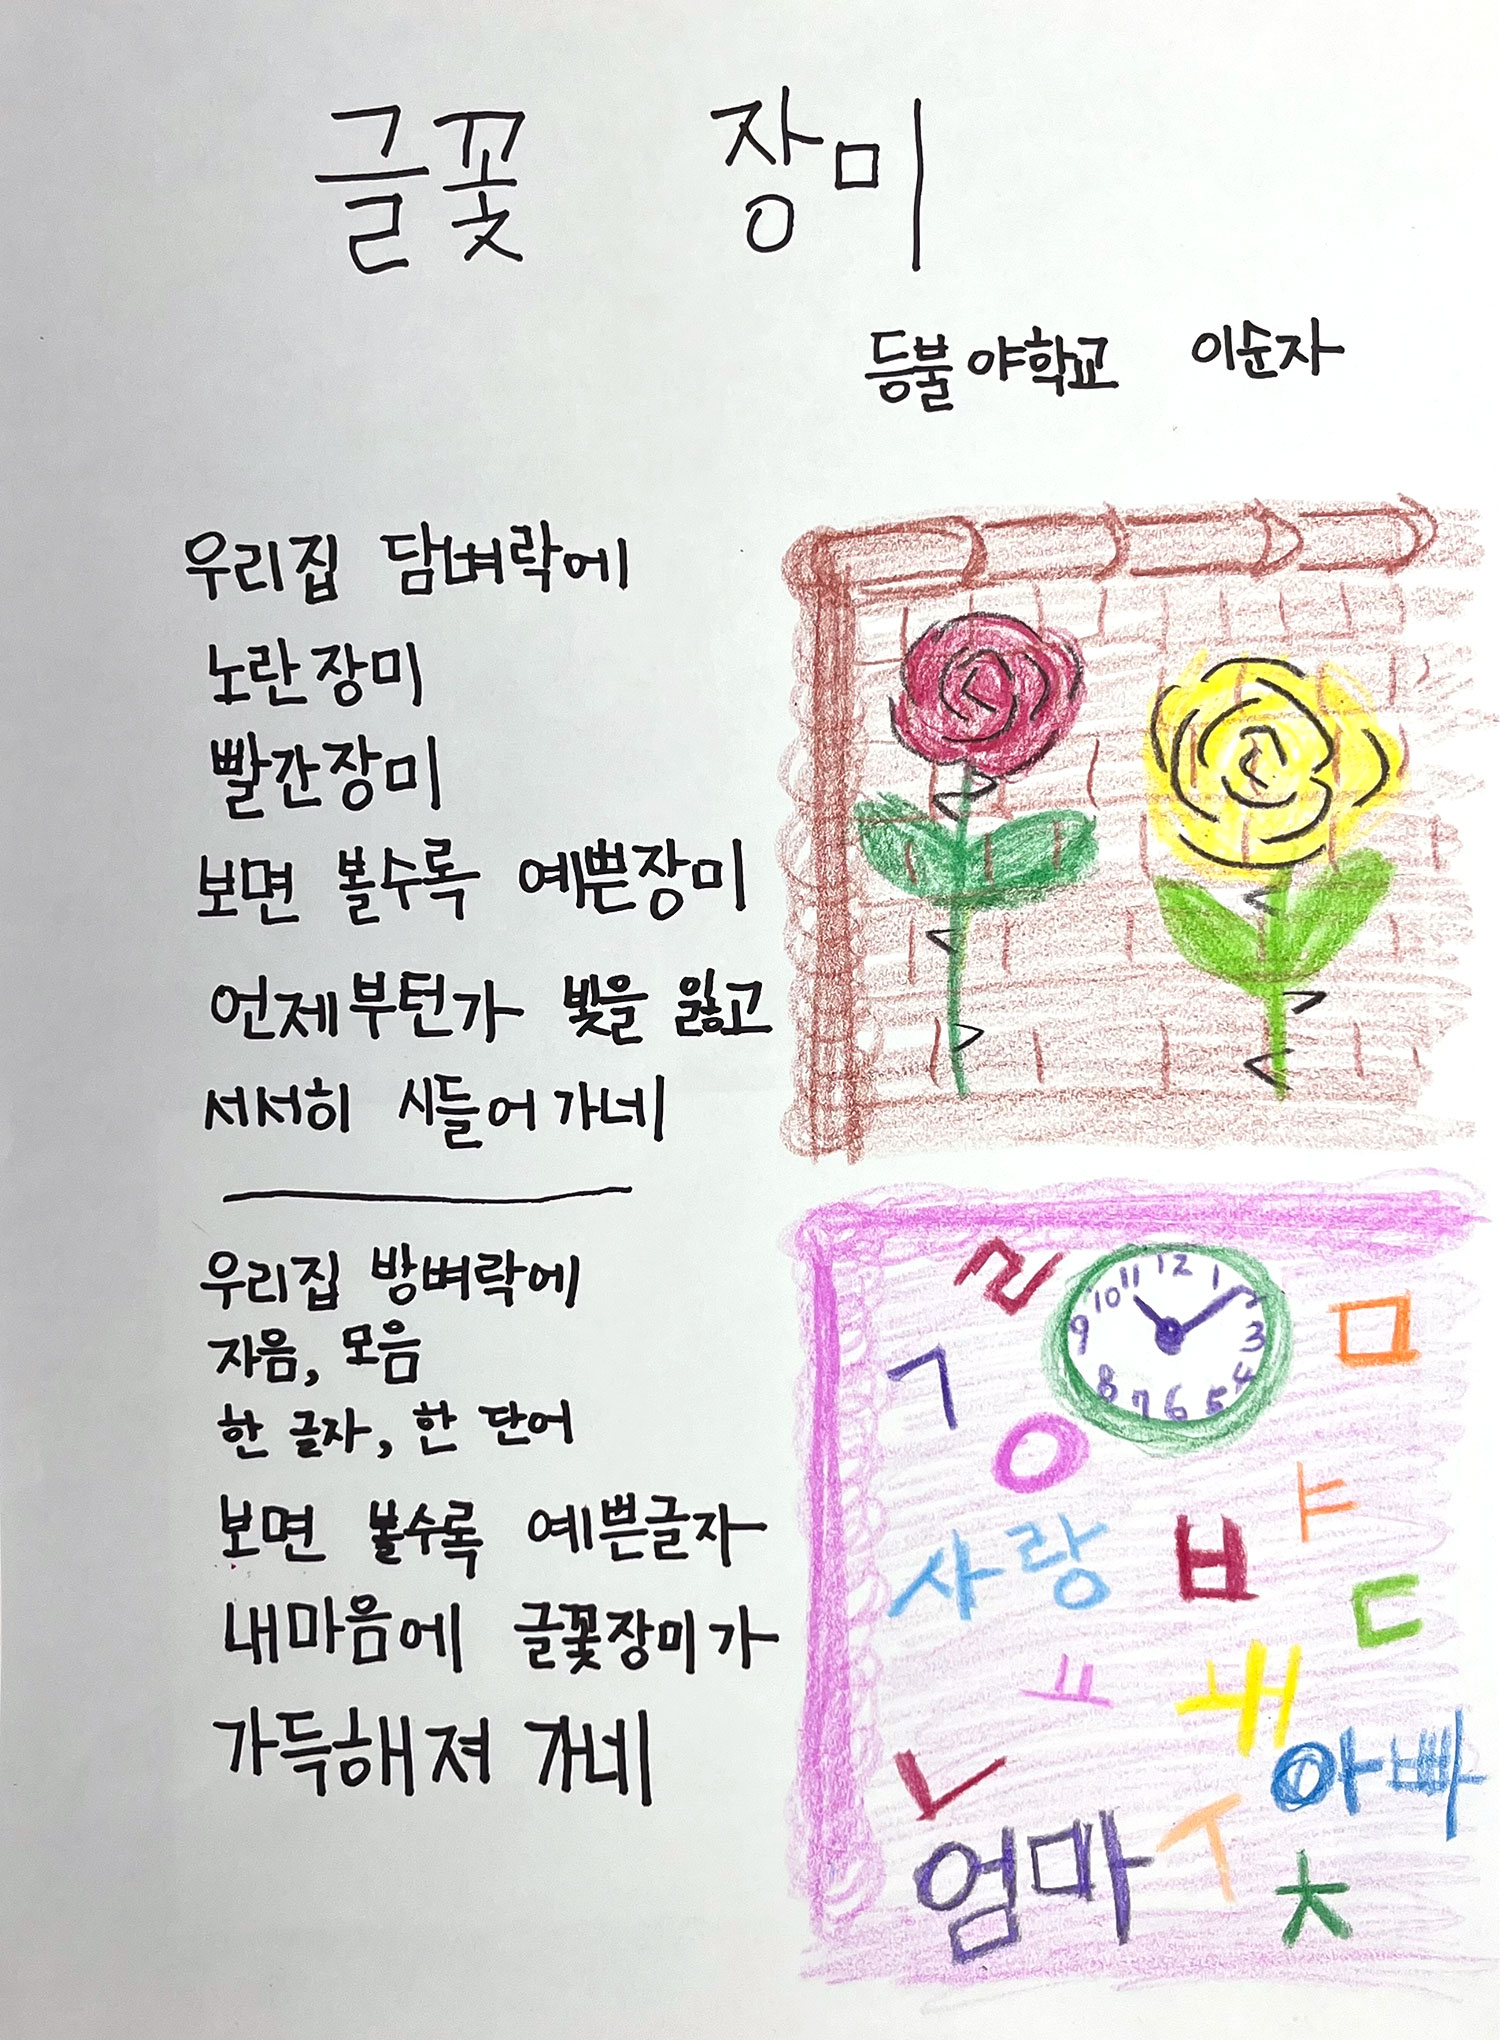 글꽃 장미
등불 야학교 이순자
우리집 담벼락에
노란장미
빨간장미
보면 볼수록 예쁜장미
언제부턴가 빛을 잃고
서서히 시들어가네
우리집 방벼락에
자음, 모음
한 글자, 한 단어
보면 볼수록 예쁜글자
내마음에 글꽃장미가
가득해져 가네
ㄹ
12
11 1
10
9 3
8 4
7 6 5
ㅁ
ㄱ
ㅇ
ㅑ
사랑 ㅂ
ㄷ
ㅛ ㅐ
아빠
ㄴ
엄마 ㅜ
ㅊ